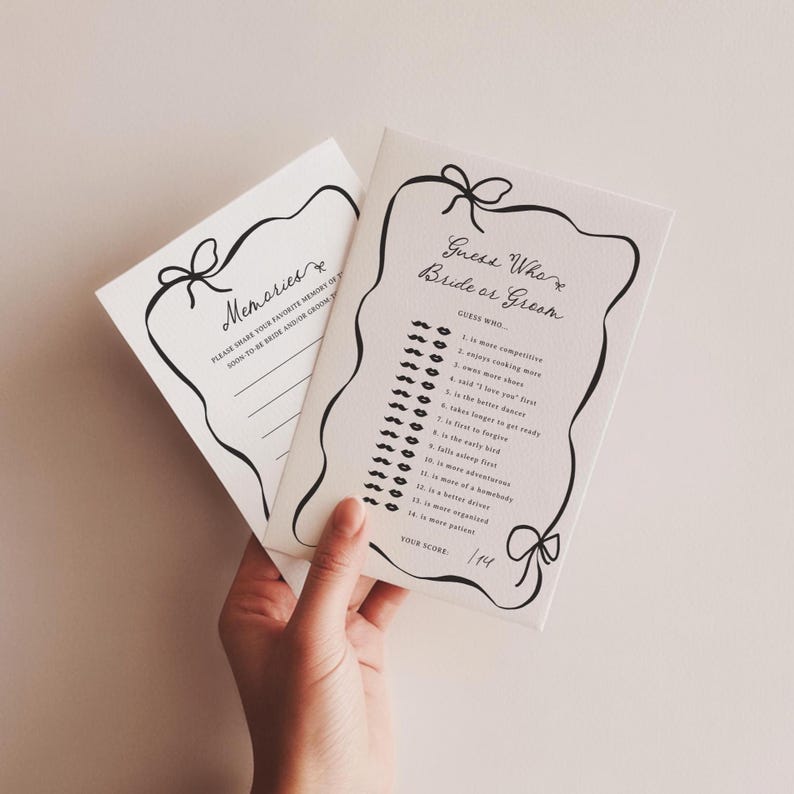 Memories
PLEASE SHARE YOUR FAVORITE MEMORY OF T
SOON-TO-BE BRIDE AND/OR GROOM-T
Guess Who
Bride or Groom
GUESS WHO...
1. is more competitive
2. enjoys cooking more
3. owns more shoes
4. said "I love you" first
5. is the better dancer
6. takes longer to get ready
7. is first to forgive
8. is the early bird
9. falls asleep first
10. is more adventurous
11. is more of a homebody
12. is a better driver
13. is more organized
14. is more patient
YOUR SCORE: /14